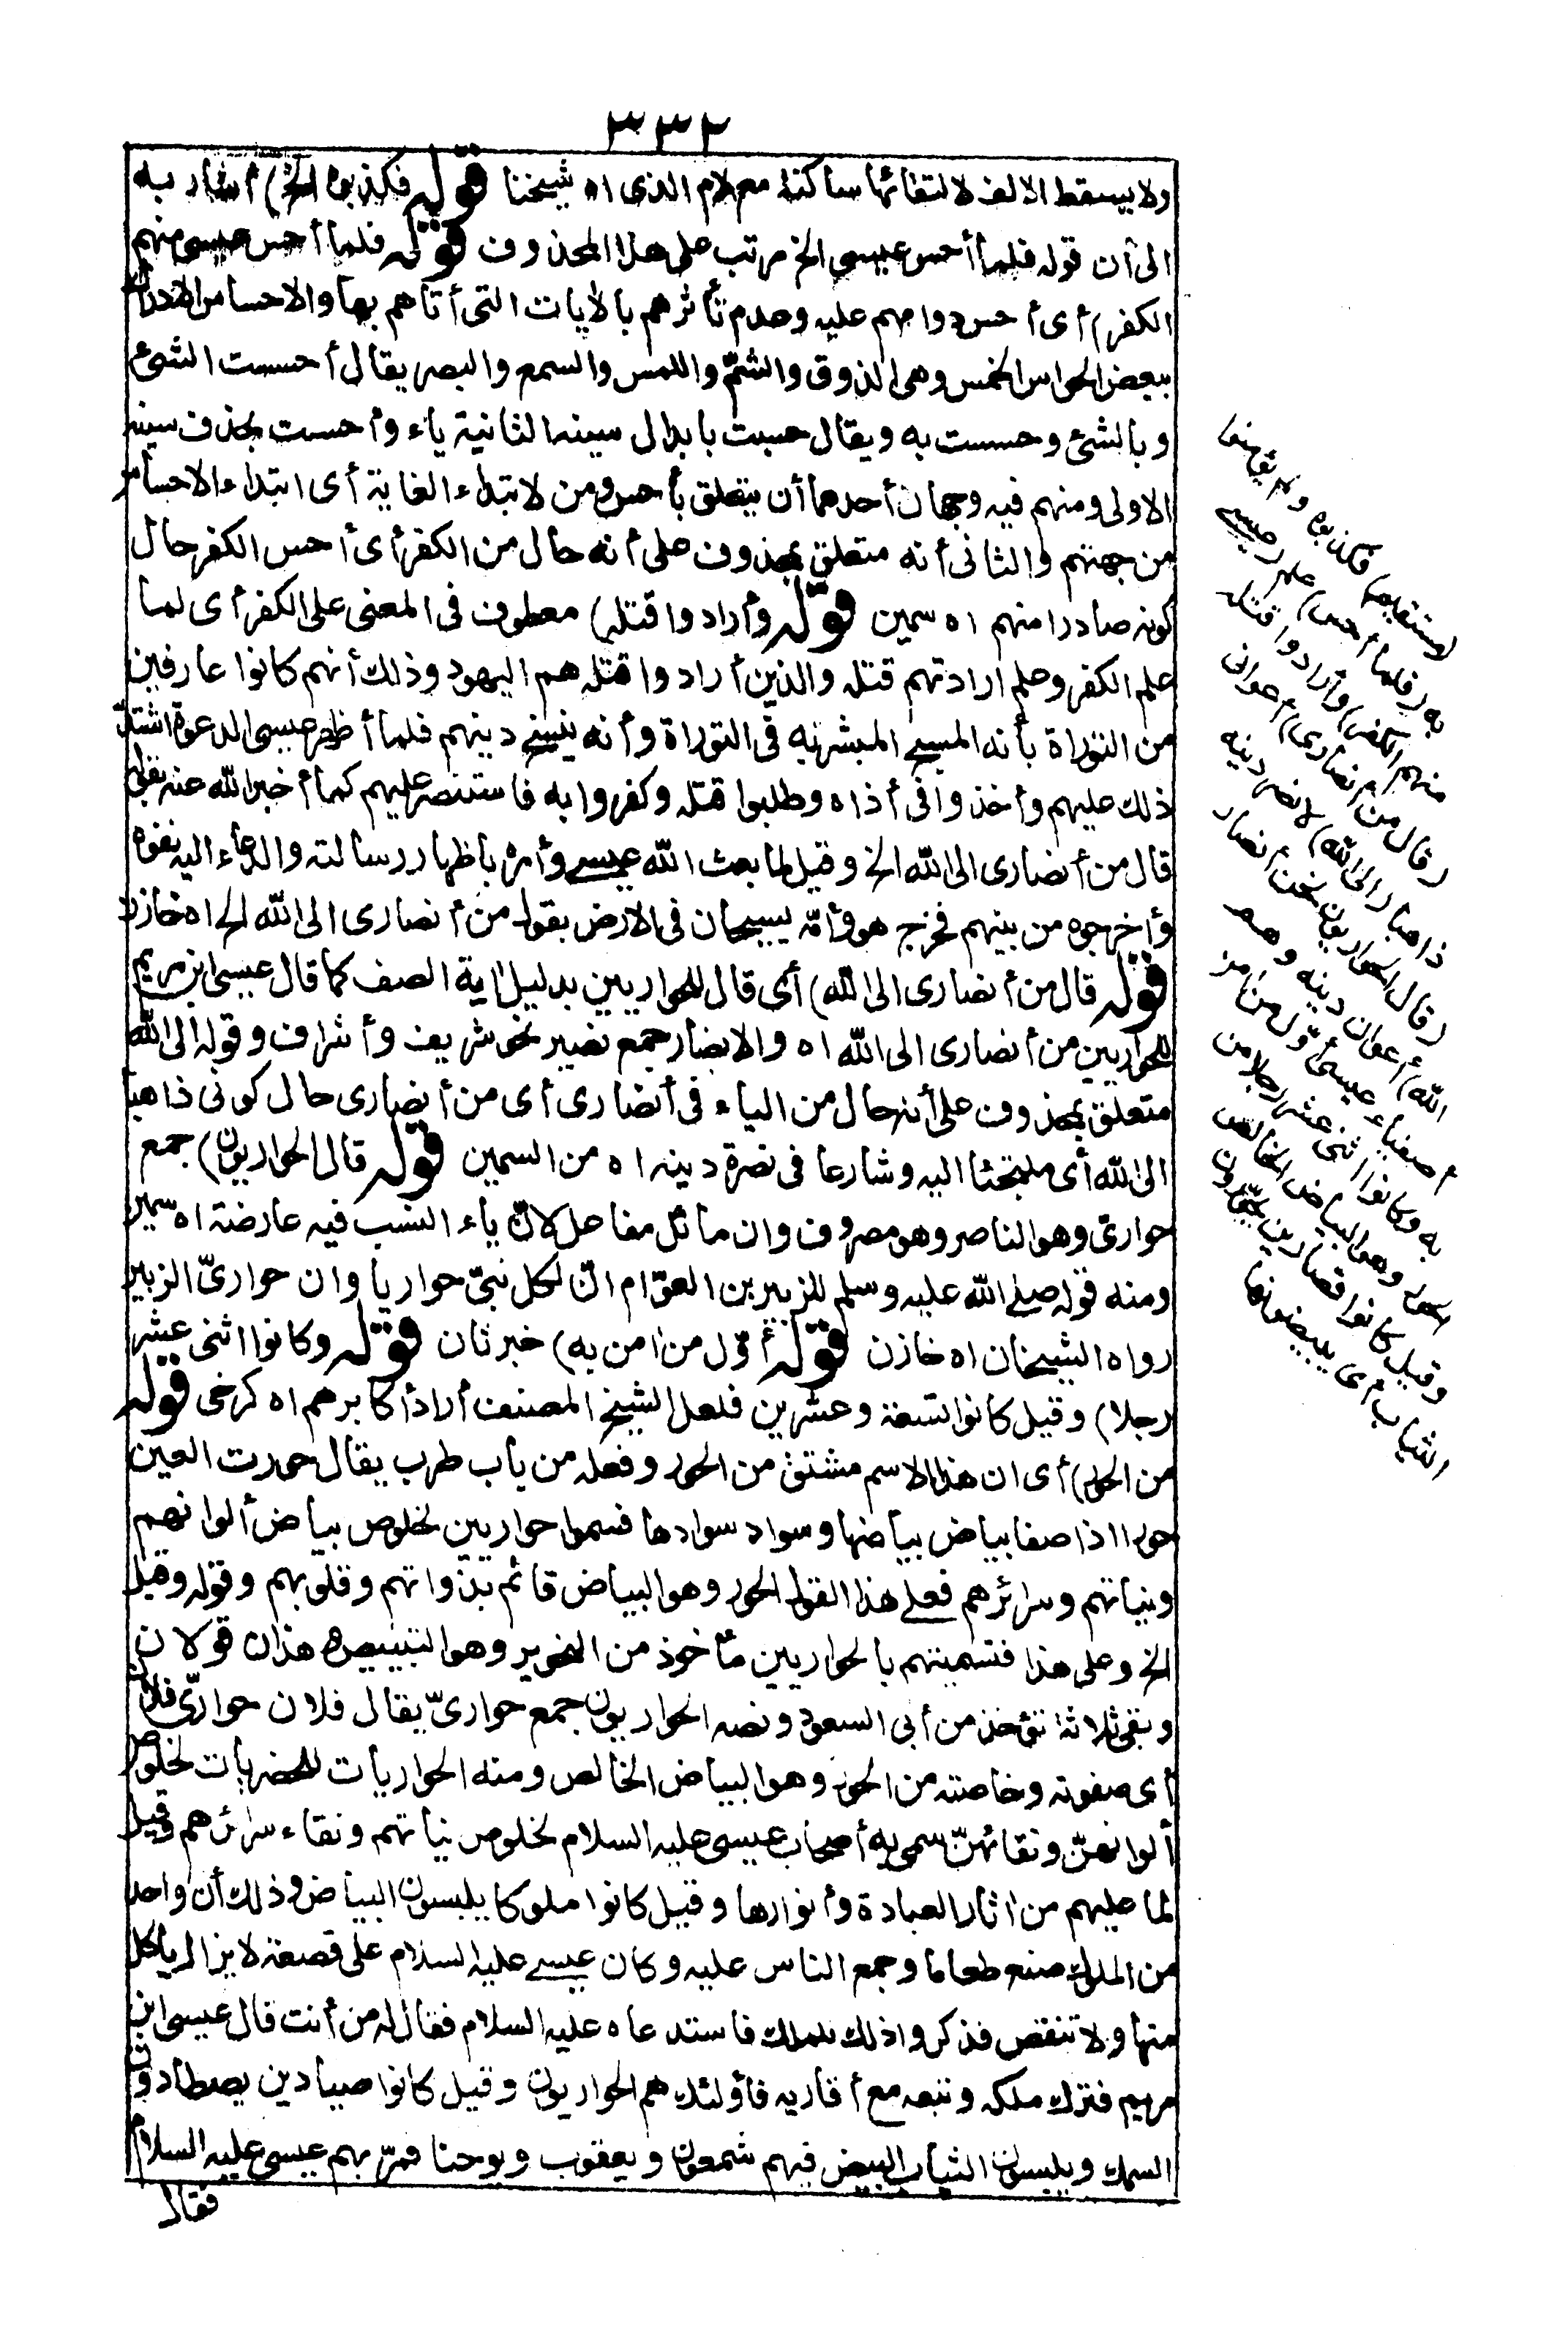 ٣٣٢
ولا يسقط الالف لالتقائها ساكنة مع لام الذى اه شيخنا قوله فكذبوه الخ) أشار به
الى أن قوله فلما أحس عيسى الخ مرتب على هذا المحذوف قوله فلما أحس عيسى منهم
الكفر) أى أحس دوامهم عليه وعدم تأثرهم بالايات التى أتاهم بها والاحساس الادراك
ببعض الحواس الخمس وهى الذوق والشمّ واللمس والسمع والبصر يقال أحسست الشئ
وبالشئ وحسست به ويقال حسيت بابدال سينه الثانية ياء وأحست بحذف سينه
الاولى ومنهم فيه وجهان أحدهما أن يتعلق بأحس ومن لابتداء الغاية أى ابتداء الاحساس
من جهتهم والثانى أنه متعلق بمحذوف على أنه حال من الكفر أى أحس الكفر حال
كونه صادرا منهم اه سمين قوله وأرادوا قتله) معطوف فى المعنى على الكفر أى لما
علم الكفر وعلم ارادتهم قتله والذين أرادوا قتله هم اليهود وذلك أنهم كانوا عارفين
من التوراة بأنه المسيح المبشر به فى التوراة وأنه ينسخ دينهم فلما أظهر عيسى الدعوة اشتدّ
ذلك عليهم وأخذوا فى أذاه وطلبوا قتله وكفروا به فاستنصر عليهم كما أخبر الله عنه بقوله
قال من أنصارى الى الله الخ وقيل لما بعث الله عيسى وأمره باظهار رسالته والدعاء اليه نفوه
وأخرجوه من بينهم فخرج هو وأمّه يسيحان فى الارض بقول من أنصارى الى الله الخ اه خازن
قوله قال من أنصارى الى الله) أى قال للحواريين بدليل اية الصف كما قال عيسى ابن مريم
للحواريين من أنصارى الى الله اه والانصار جمع نصير نحو شريف وأشراف وقوله الى الله
متعلق بمحذوف على أنه حال من الياء فى أنصارى أى من أنصارى حال كونى ذاهبا
الى الله أى ملتجئا اليه وشارعا فى نصرة دينه اه من السمين قوله قال الحواريون) جمع
حوارىّ وهو الناصر وهو مصروف وان ماثل مفاعل لانّ ياء النسب فيه عارضة اه سمين
ومنه قوله صلى الله عليه وسلم للزبير بن العوّام انّ لكل نبىّ حواريا وان حوارىّ الزبير
رواه الشيخان اه خازن قوله أوّل من امن به) خبر ثان قوله وكانوا اثنى عشر
رجلا) وقيل كانوا تسعة وعشرين فلعل الشيخ المصنف أراد أكابرهم اه كرخى قوله
من الحور) أى ان هذا الاسم مشتق من الحور وفعله من باب طرب يقال حورت العين
حورا اذا صفا بياض بياضها وسواد سوادها فسموا حواريين لخلوص بياض ألوانهم
ونياتهم وسرائرهم فعلى هذا القول الحور وهو البياض قائم بذواتهم وقلوبهم وقوله وقيل
الخ وعلى هذا فتسميتهم بالحواريين مأخوذ من التحوير وهو التبييض هذان قولان
وبقى ثلاثة تؤخذ من أبى السعود ونصه الحواريون جمع حوارىّ يقال فلان حوارىّ فلان
أى صفوته وخاصته من الحور وهو البياض الخالص ومنه الحواريات للحضريات لخلوص
ألوانهنّ ونقائهنّ سمى به أصحاب عيسى عليه السلام لخلوص نياتهم ونقاء سرائرهم وقيل
لما عليهم من اثار العبادة وأنوارها وقيل كانوا ملوكا يلبسون البياض وذلك أن واحدا
من الملوك صنع طعاما وجمع الناس عليه وكان عيسى عليه السلام على قصعة لا يزال يأكل
منها ولا تنقص فذكروا ذلك للملك فاستدعاه عليه السلام فقال له من أنت قال عيسى ابن
مريم فترك ملكه وتبعه مع أقاربه فأولئك هم الحواريون وقيل كانوا صيادين يصطادون
السمك ويلبسون الثياب البيض فيهم شمعون ويعقوب ويوحنا فمرّ بهم عيسى عليه السلام
فقال
لاستقيم) فكذبوه ولم يؤمنوا
به (فلما أحس) علم (عيسى
منهم الكفر) وأرادوا قتله
(قال من أنصارى) أعوانى
ذاهبا (الى الله) لانصر دينه
(قال الحواريون نحن أنصار
الله) أعوان دينه وهم
أصفياء عيسى أوّل من امن
به وكانوا اثنى عشر رجلا من
الحور وهو البياض الخالص
وقيل كانوا قصارين يحوّرون
الثياب أى يبيضونها